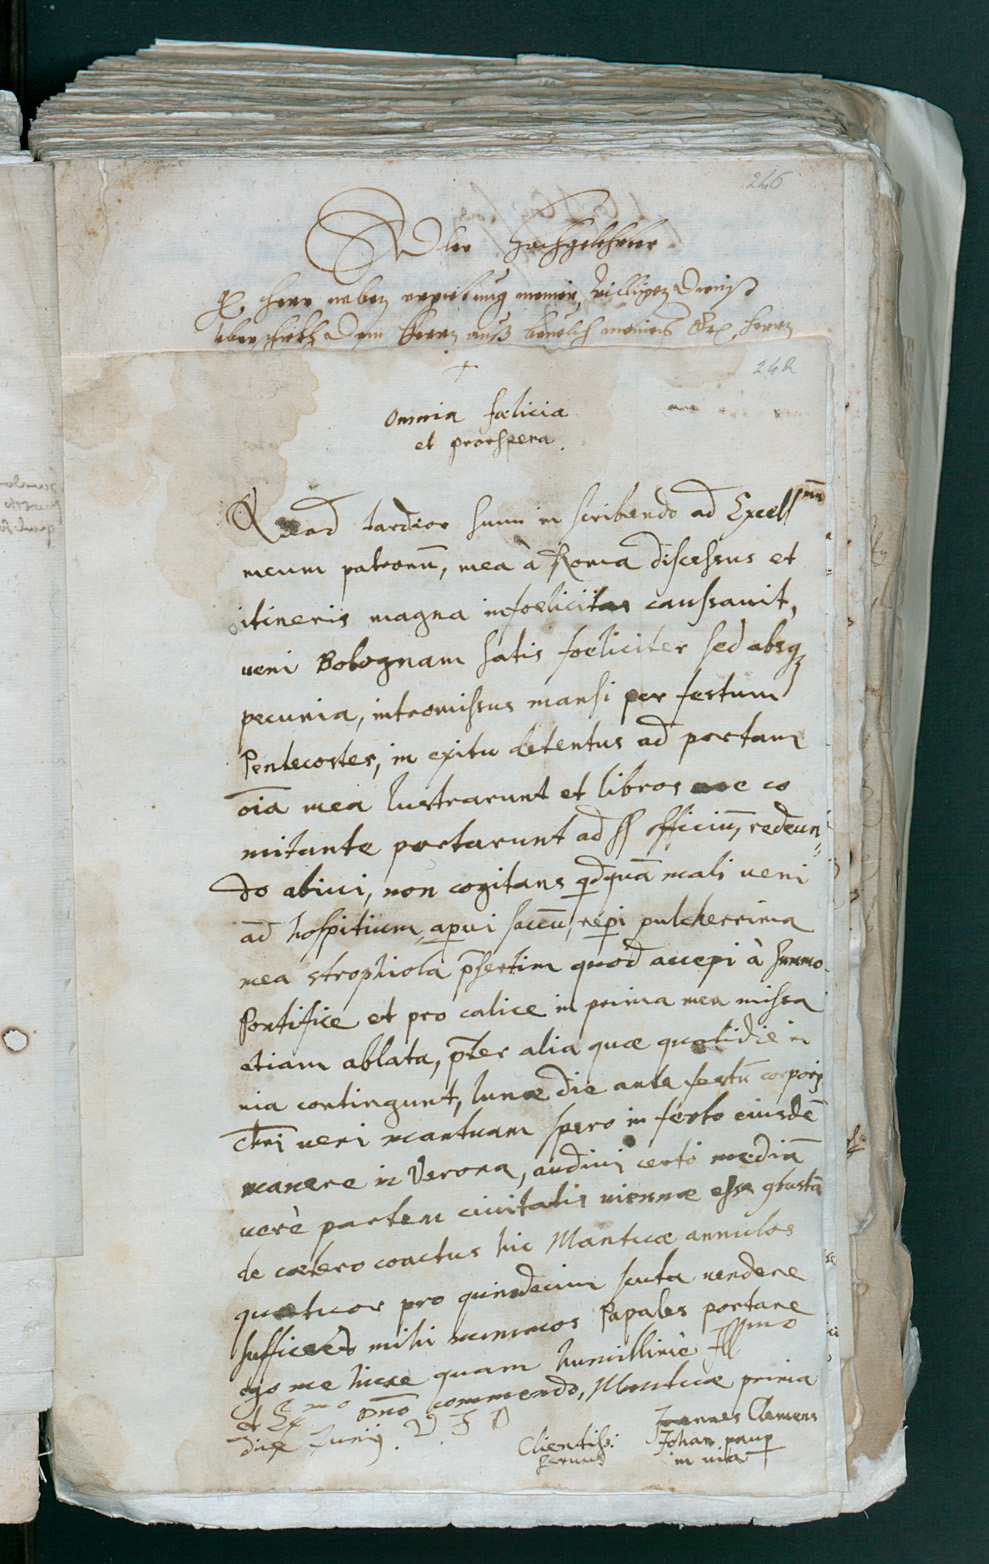 246
Edler Hochgelehrter
248
+
Omnia foelicia
et prospera.
Quod tardior sum in scribendo ad Excell mũ
meum patronũ, mea à Roma discessus et
itineris magna infoelicitas caussauit,
veni Bolognam satis foeliciter sed absq
pecunia, intromissus mansi per festum
Pentecostes, in exitu detentus ad portam
oĩa mea lustrarunt et libros me co
mitante portarunt ad SS officiũ, redeun„
do abiui, non cogitans qdquã mali veni
ad hospitium, aperui saccũ, reperi pulcherrima
mea strophiola pñsertim quod accepi à summo
Pontifice et pro calice in prima mea missa
etiam ablata, pñter alia quæ quotidie in
via contingunt, lunæ die ante festũ corporis
Chri veni Mantuam spero in festo eiusdẽ
manere in Verona, audiui certò mediã
verè partem ciuitatis viennæ esse gbustã
de cætero coactus hic Mantuæ annulos
quatuor pro quindecim scuta vendere
mihi nummos Papales portare
ego me hisce quam humillimè Illmo
et mo Dño commendo, Mantuæ prima
die Junij.
Clientiss: Joannes Clemens
seruus Johan paup
in via